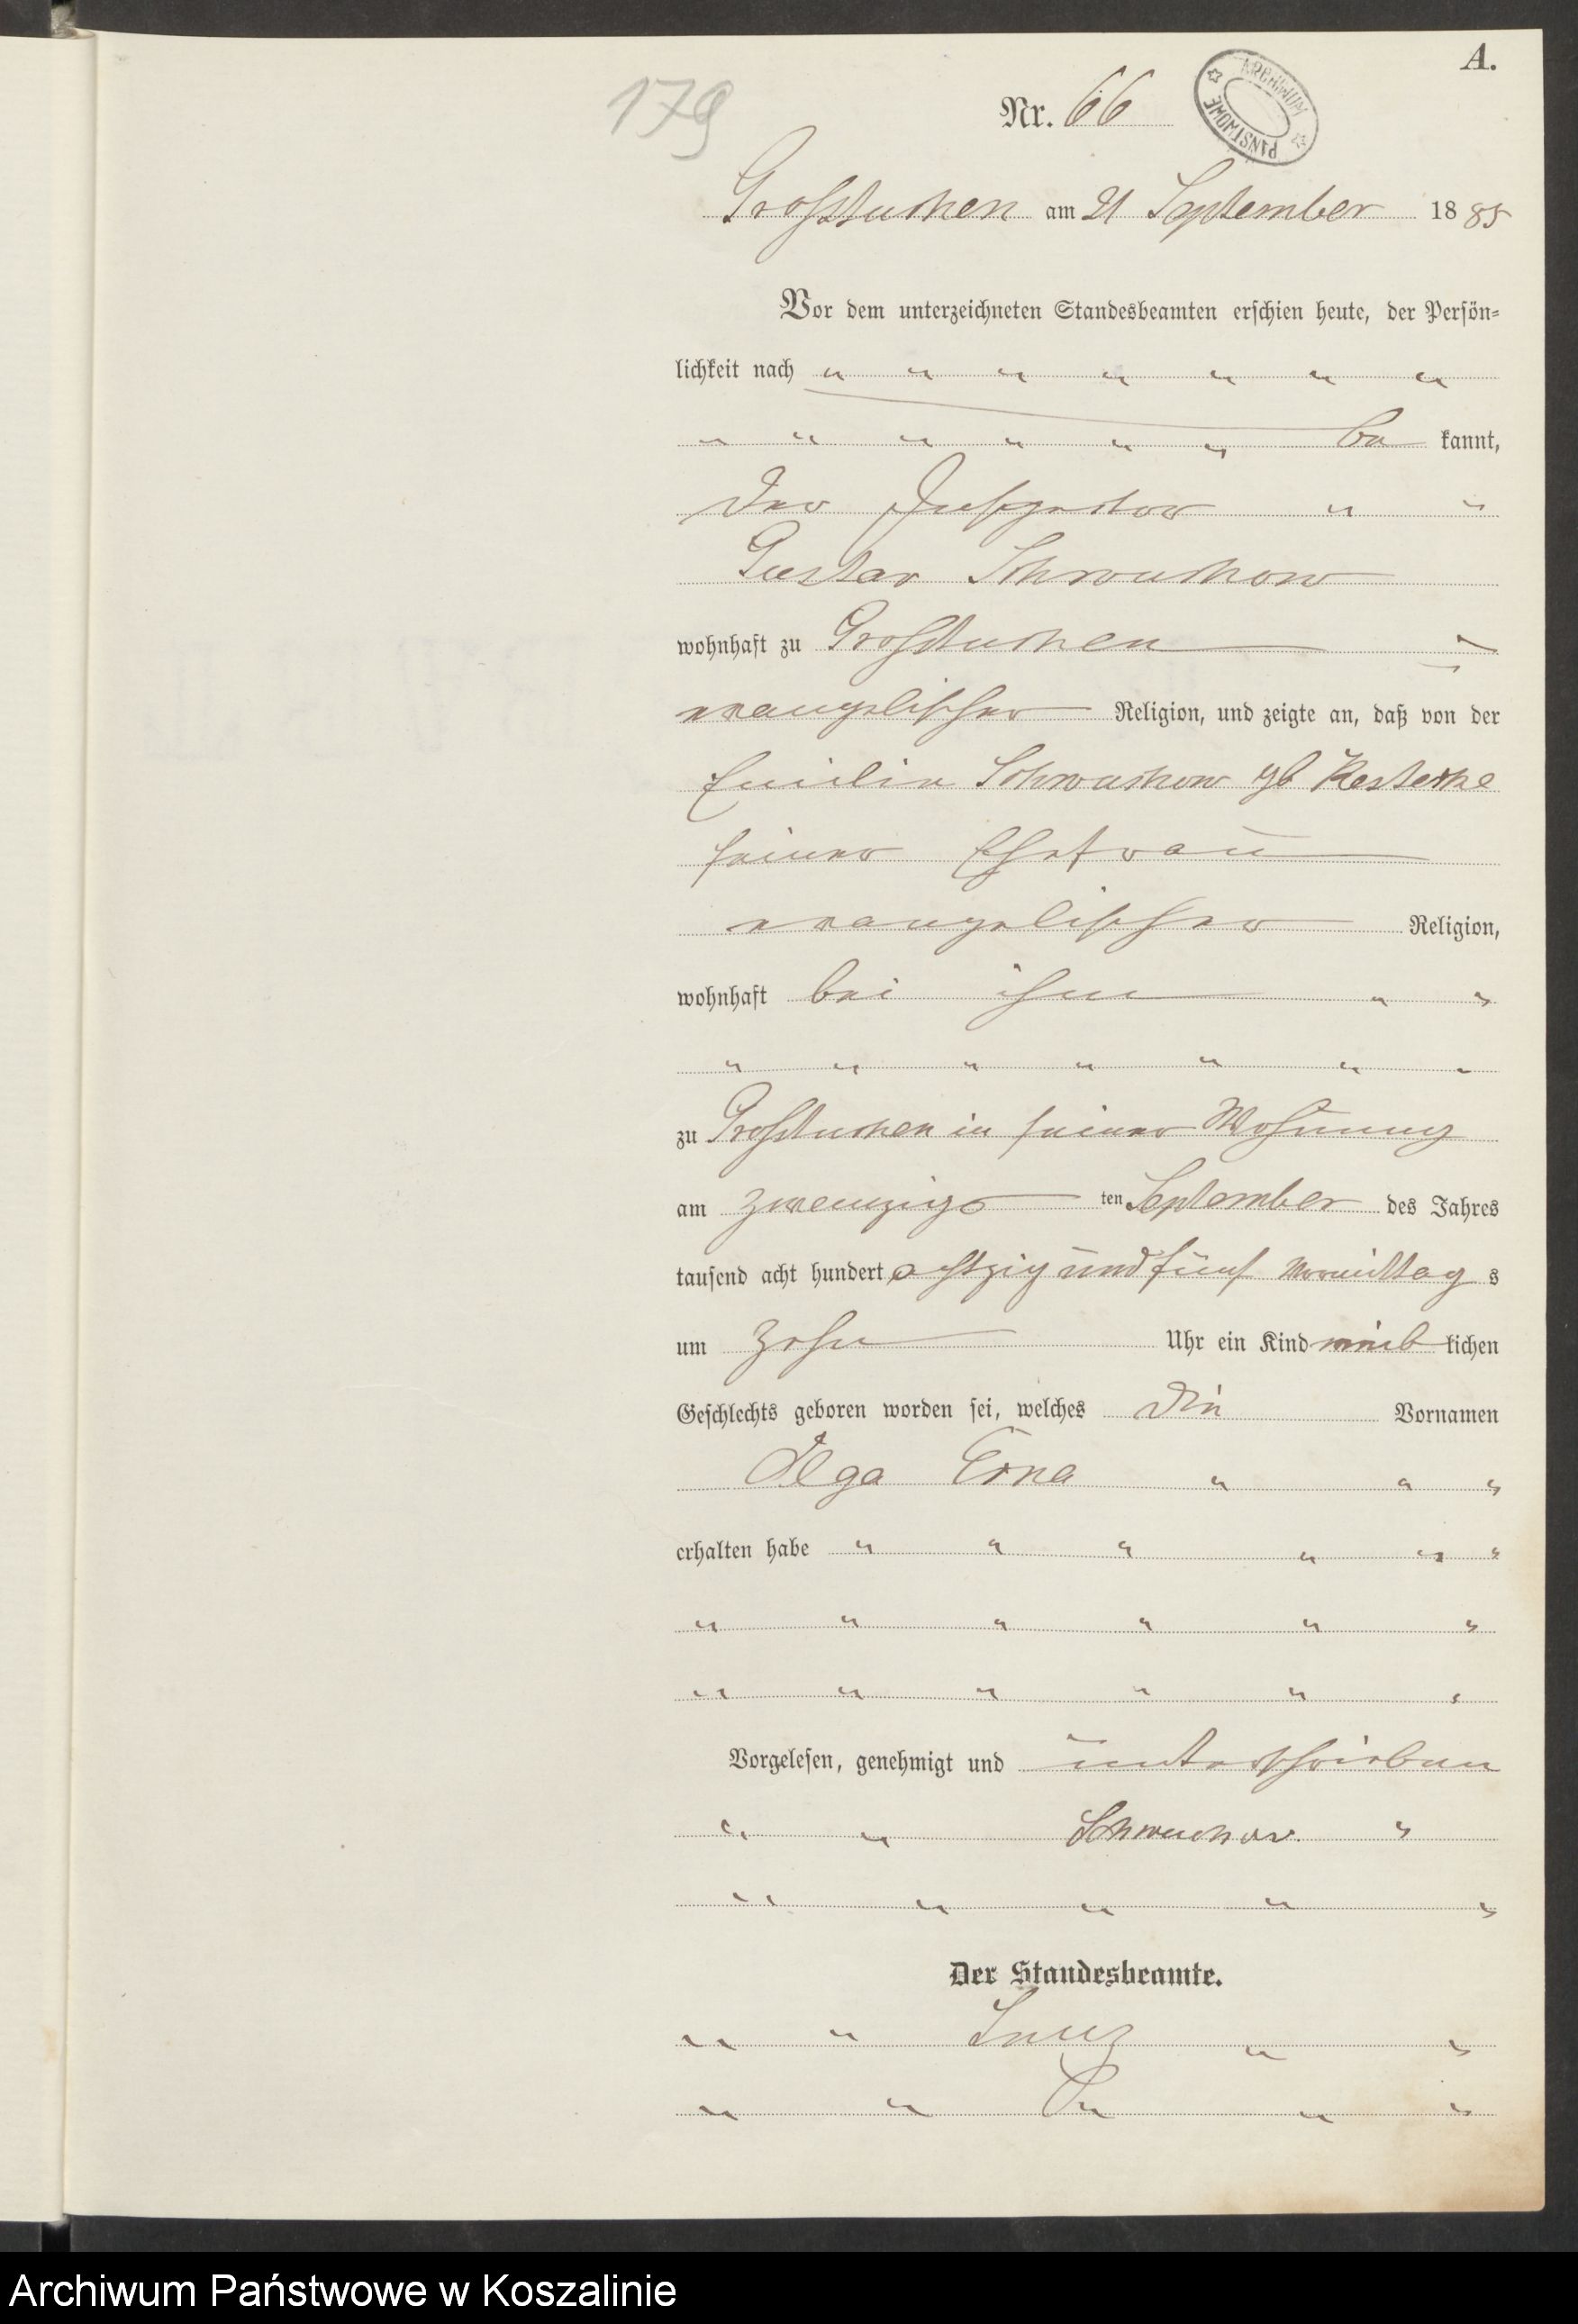 A.
179
Nr. 66
ARCHIWUM PAŃSTWOWE
Grosstuchen am 21 September 1885
Vor dem unterzeichneten Standesbeamten erschien heute, der Persön-
lichkeit nach
be kannt,
der Inspector
Gustav Schwuchow
wohnhaft zu Grosstuchen
evangelischer Religion, und zeigte an, daß von der
Emilie Schwuchow gb
seiner Ehefrau
evangelischer Religion,
wohnhaft bei ihm
zu Grosstuchen in seiner Wohnung
am zwanzigs ten September des Jahres
tausend acht hundert achtzig und fünf Vormittag s
um zehn Uhr ein Kind weib lichen
Geschlechts geboren worden sei, welches die Vornamen
Olga Erna
erhalten habe
Vorgelesen, genehmigt und unterschrieben
Schwuchow
Der Standesbeamte.
Archiwum Państwowe w Koszalinie